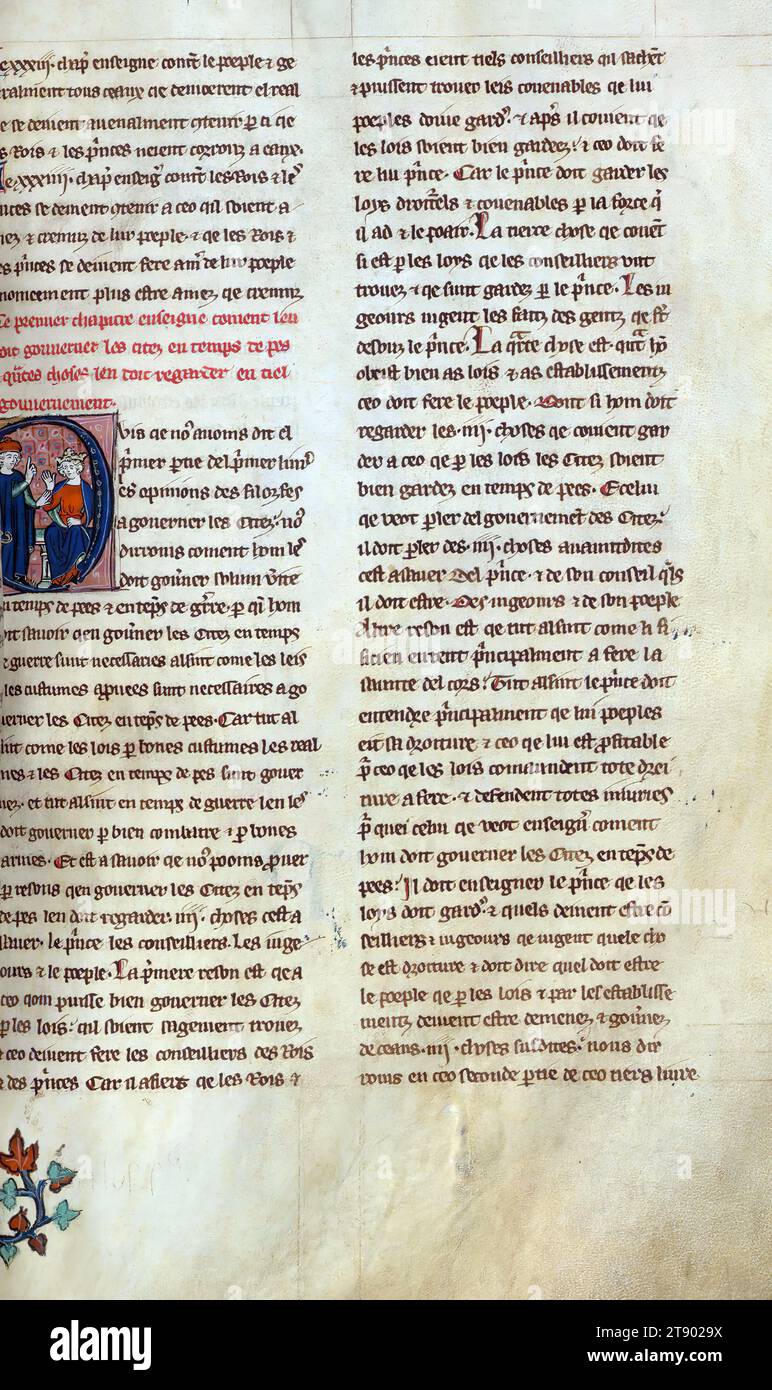 e.xxxiii. chap̄ enseigne com̄t le poeple & ge
ralment tous ceaux qe demoerent el real
e se deiuent auenalment ꝯtenir par ci qe
s Rois & les p̄nces neient corrouz a eaux.
le.xxxiiii. chap̄ enseiḡ com̄t les Rois & les
nces se deiuent ꝯtenir a ceo qil soient a
mez & cremuz de lur poeple. & qe les Rois &
es p̄nces se deiuent fere am̄ de lur poeple
nomeement plus estre amez qe cremuz
Le premier chapitre enseigne coment len
doit gouuerner les citez en temps de pes
qn̄tes choses len doit regarder en tiel
gouuernement.
Puis qe no9 auoms dit el
p̄mier partie del p̄mier liure
les opinions des filozofes
a gouerner les Citez. no9
dirroms coment hom les
doit gou̅ner solum v̅ite
en temps de pees & en temp̄s de gu̅re. p̲ qi hom
doit sauoir qen gou̅ner les Citez en temps
de guerre sunt necessaries alsint come les leis
les custumes apruees sunt necessaires a go
uerner les Citez en temp̄s de pees. Car tut al
sint come les lois p̲ bones custumes les real
mes & les Citez en temps de pes sunt gouer
nez. et tut alsint en temps de guerre len les
doit gouerner p̲ bien combatre & p̲ bones
armes. Et est a sauoir qe no9 pooms p̲uer
p̲ resons qen gouerner les Citez en temp̄s
de pes len doit regarder .iiii. choses cest a
sauer. le p̄nce les conseilliers. Les iuge
ours & le poeple. La p̄miere reson est qe a
ceo qom puisse bien gouerner les Citez
p̲ les lois: qil soient sagement trouez
& ceo deiuent fere les conseilliers des Rois
& des p̄nces Car il afiert qe les Rois &
les p̄nces eient tiels conseilliers qil sachēt
& puissent trouer leis couenables qe lui
poeples doiue gard̅. & ap̄s il couient qe
les lois soient bien gardez: & ceo doit fe
re lui p̄nce. Car le p̄nce doit garder les
loys droit̅els & couenables p̲ la force q̄
il ad & le poair. La tierce chose qe couēt
si est p̲ les loys qe les conseilliers vnt
trouez & qe sunt gardez p̲ le p̄nce. Les iu
geours iugent les faitz des gentz qe sn̄t
desouz le p̄nce. La qᵃrte chose est. qnᵃt hō
obeist bien as lois & as establissementz
ceo doit fere le poeple. Dont si hom doit
regarder les .iiii. choses qe couient gar
der a ceo qe p̲ les lois les Citez soient
bien gardez en temps de pees. E celui
qe veot p̲ler del gouernemēt des Citez:
il doit p̲ler des .iiii. choses auantdites
cest asauer Del p̄nce. & de son conseil qᵉls
il doit estre. Des iugeours & de son poeple
Altre reson est qe tut alsint come li fi
sicien entent p̄ncipalment a fere la
saunte del cors: Tut alsint le p̄nce doit
entendre p̄ncipalment qe lui poeples
eit sa droiture & ceo qe lui est profitable
p̲ ceo qe les lois comandent tote drei
ture a fere. & defendent totes iniuries
p̲ quei celui qe veot enseign̅ coment
hom doit gouerner les Citez en temp̄s de
pees: Il doit enseigner le p̄nce qe les
loys doit gard̅. & quels deiuent estre cō
seilliers & iugeours qe iugent quele cho
se est droiture & doit dire quel doit estre
le poeple qe p̲ les lois & par les establisse
mentz deiuent estre demenez & gou̅nez
de ceans .iiii. choses susdites. nous dir
roms en ceo seconde p̲tie de ceo tiers liure
alamy
Image ID: 2T9029X
www.alamy.com